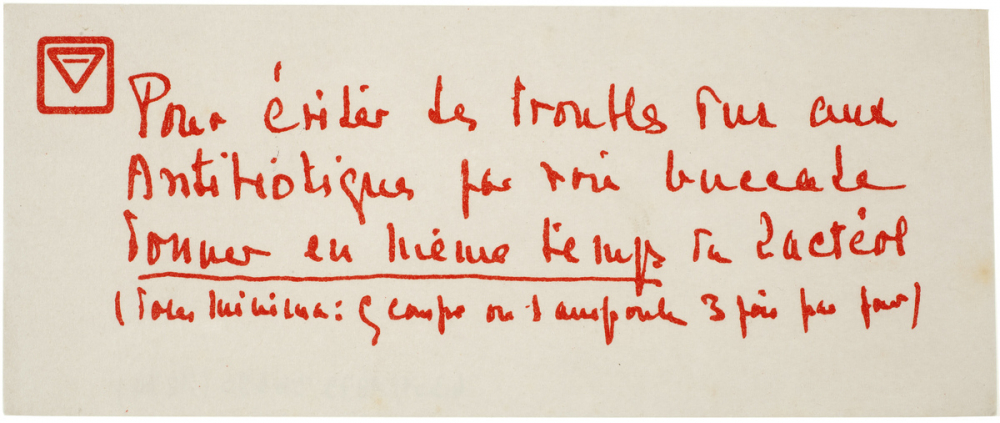 Pour éviter les troubles dus aux
Antibiotiques par voie buccale
donner en même temps du Lactéol
(Doses minima: 5 comps ou 1 ampoule 3 fois par jour)